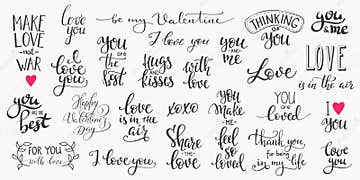 MAKE
LOVE
-not-
WAR
love
you
be my Valentine
THINKING
of
YOU
you
&me
I love you
you
-AND-
me
LOVE
is in the air
I
love
you
YOU
are
the
best
HUGS
and
kisses
with
love
Love
you
ARE
the
BEST
Happy
Valentine's
Day
love
is in the
air
xoxo
YOU
MAKE
-ME-
feel
so
loved
YOU
are
loved
I
YOU
FOR YOU
with love
I love you
Share
the
love
Thank you,
for being
in my life
love
you